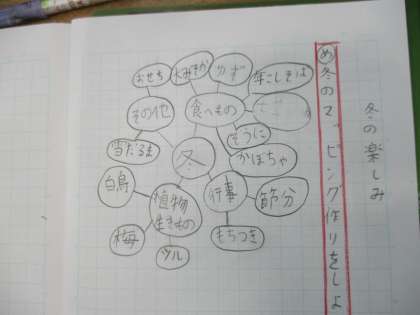 冬の楽しみ
め 冬のマッピング作りをしよ
冬
食べもの
大みそか
年こしそば
ぞうに
かぼちゃ
その他
おせち
雪だるま
行事
節分
もちつき
植物
生きもの
白鳥
梅
ツル